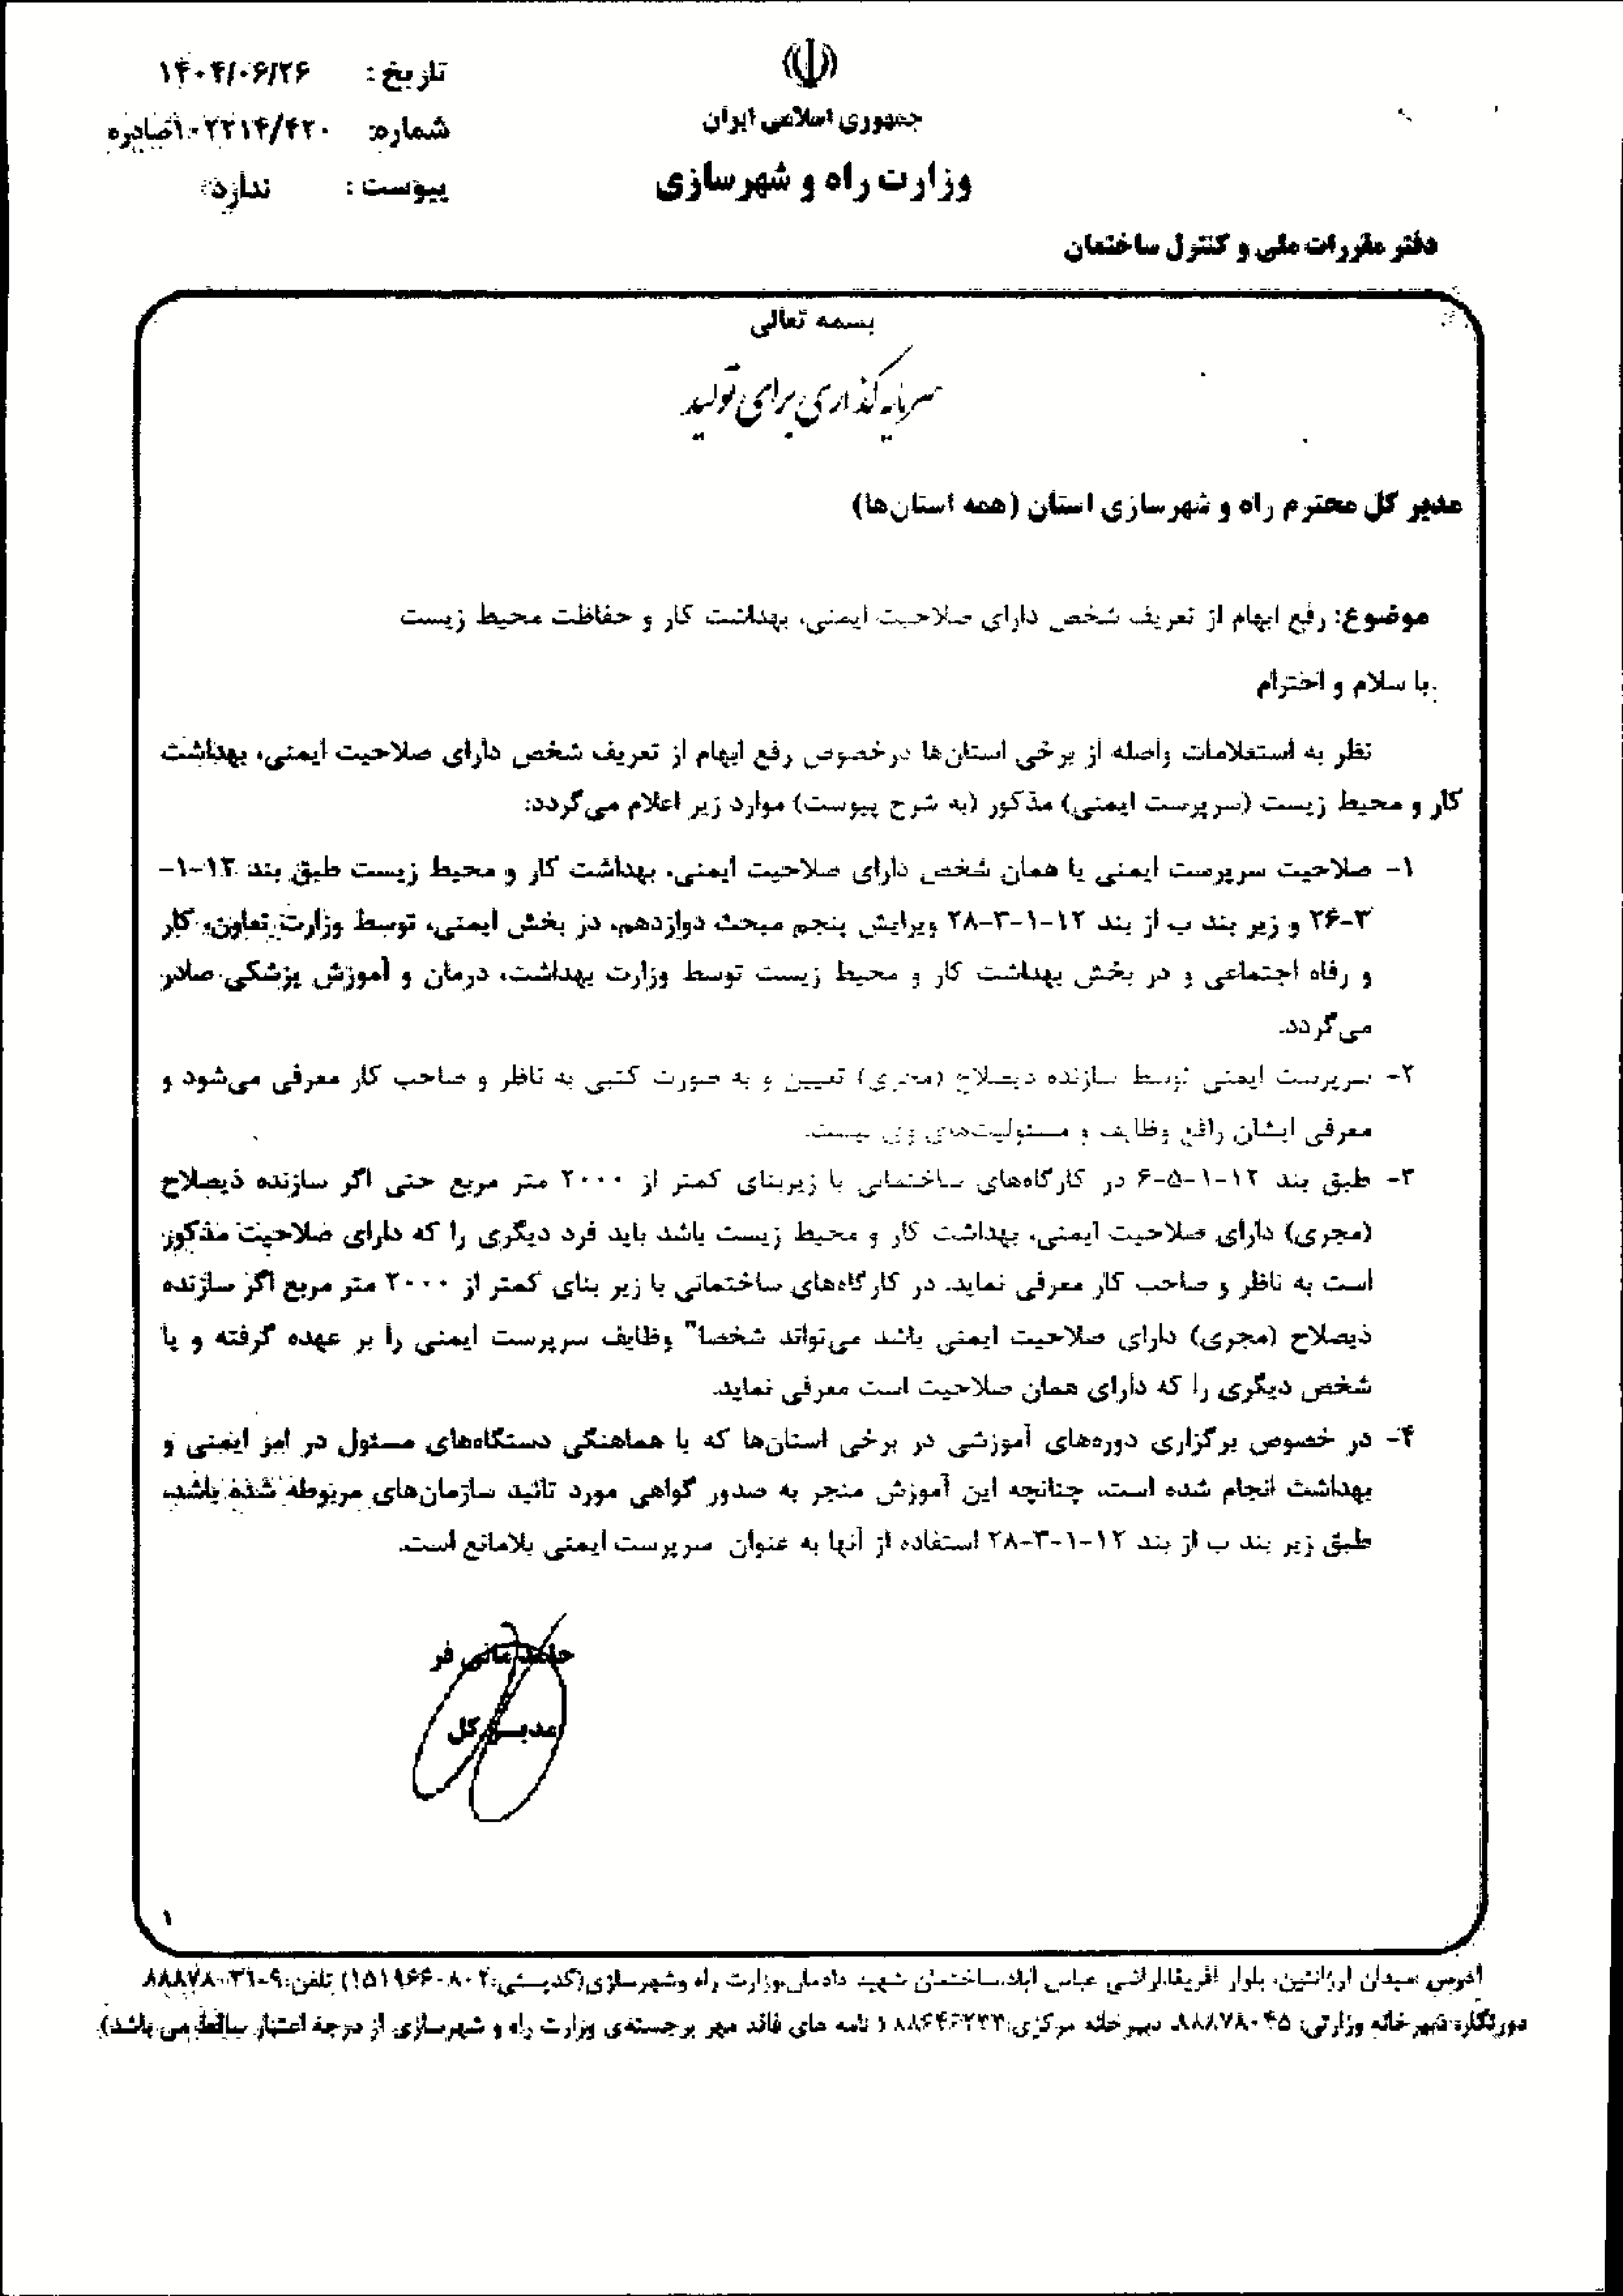 تاریخ : ۱۴۰۴/۰۶/۲۶
شماره: ۱۰۲۲۱۴/۴۲۰صادره
پیوست : ندارد
جمهوری اسلامی ایران
وزارت راه و شهرسازی
دفتر مقررات ملی و کنترل ساختمان
بسمه تعالی
سرمایه گذاری برای تولید
مدیر کل محترم راه و شهرسازی استان (همه استان‌ها)
موضوع: رفع ابهام از تعریف شخص دارای صلاحیت ایمنی، بهداشت کار و حفاظت محیط زیست
با سلام و احترام
نظر به استعلامات واصله از برخی استان‌ها درخصوص رفع ابهام از تعریف شخص دارای صلاحیت ایمنی، بهداشت
کار و محیط زیست (سرپرست ایمنی) مذکور (به شرح پیوست) موارد زیر اعلام می‌گردد:
۱- صلاحیت سرپرست ایمنی یا همان شخص دارای صلاحیت ایمنی، بهداشت کار و محیط زیست طبق بند ۱۲-۱-
۳-۲۶ و زیر بند ب از بند ۱۲-۱-۳-۲۸ ویرایش پنجم مبحث دوازدهم، در بخش ایمنی، توسط وزارت تعاون، کار
و رفاه اجتماعی و در بخش بهداشت کار و محیط زیست توسط وزارت بهداشت، درمان و آموزش پزشکی صادر
می‌گردد.
۲- سرپرست ایمنی توسط سازنده ذیصلاح (مجری) تعیین و به صورت کتبی به ناظر و صاحب کار معرفی می‌شود و
معرفی ایشان رافع وظایف و مسئولیت‌های وی نیست.
۳- طبق بند ۱۲-۱-۵-۶ در کارگاه‌های ساختمانی با زیربنای کمتر از ۲۰۰۰ متر مربع حتی اگر سازنده ذیصلاح
(مجری) دارای صلاحیت ایمنی، بهداشت کار و محیط زیست باشد باید فرد دیگری را که دارای صلاحیت مذکور
است به ناظر و صاحب کار معرفی نماید. در کارگاه‌های ساختمانی با زیر بنای کمتر از ۲۰۰۰ متر مربع اگر سازنده
ذیصلاح (مجری) دارای صلاحیت ایمنی باشد می‌تواند شخصا" وظایف سرپرست ایمنی را بر عهده گرفته و یا
شخص دیگری را که دارای همان صلاحیت است معرفی نماید.
۴- در خصوص برگزاری دوره‌های آموزشی در برخی استان‌ها که با هماهنگی دستگاه‌های مسئول در امر ایمنی و
بهداشت انجام شده است، چنانچه این آموزش منجر به صدور گواهی مورد تائید سازمان‌های مربوطه شده باشد،
طبق زیر بند ب از بند ۱۲-۱-۳-۲۸ استفاده از آنها به عنوان سرپرست ایمنی بلامانع است.
حامد مانی فر
مدیر کل
۱
آدرس :میدان آرژانتین، بلوار آفریقا،اراضی عباس آباد،ساختمان شهید دادمان،وزارت راه وشهرسازی(کدپستی:۱۵۱۹۶۶۰۸۰۲) تلفن:۹-۸۸۸۷۸۰۳۱
دورنگار:دبیرخانه وزارتی: ۸۸۸۷۸۰۴۵، دبیرخانه مرکزی:۸۸۶۴۶۲۳۳ ( نامه های فاقد مهر برجسته‌ی وزارت راه و شهرسازی از درجه اعتبار ساقط می باشد)